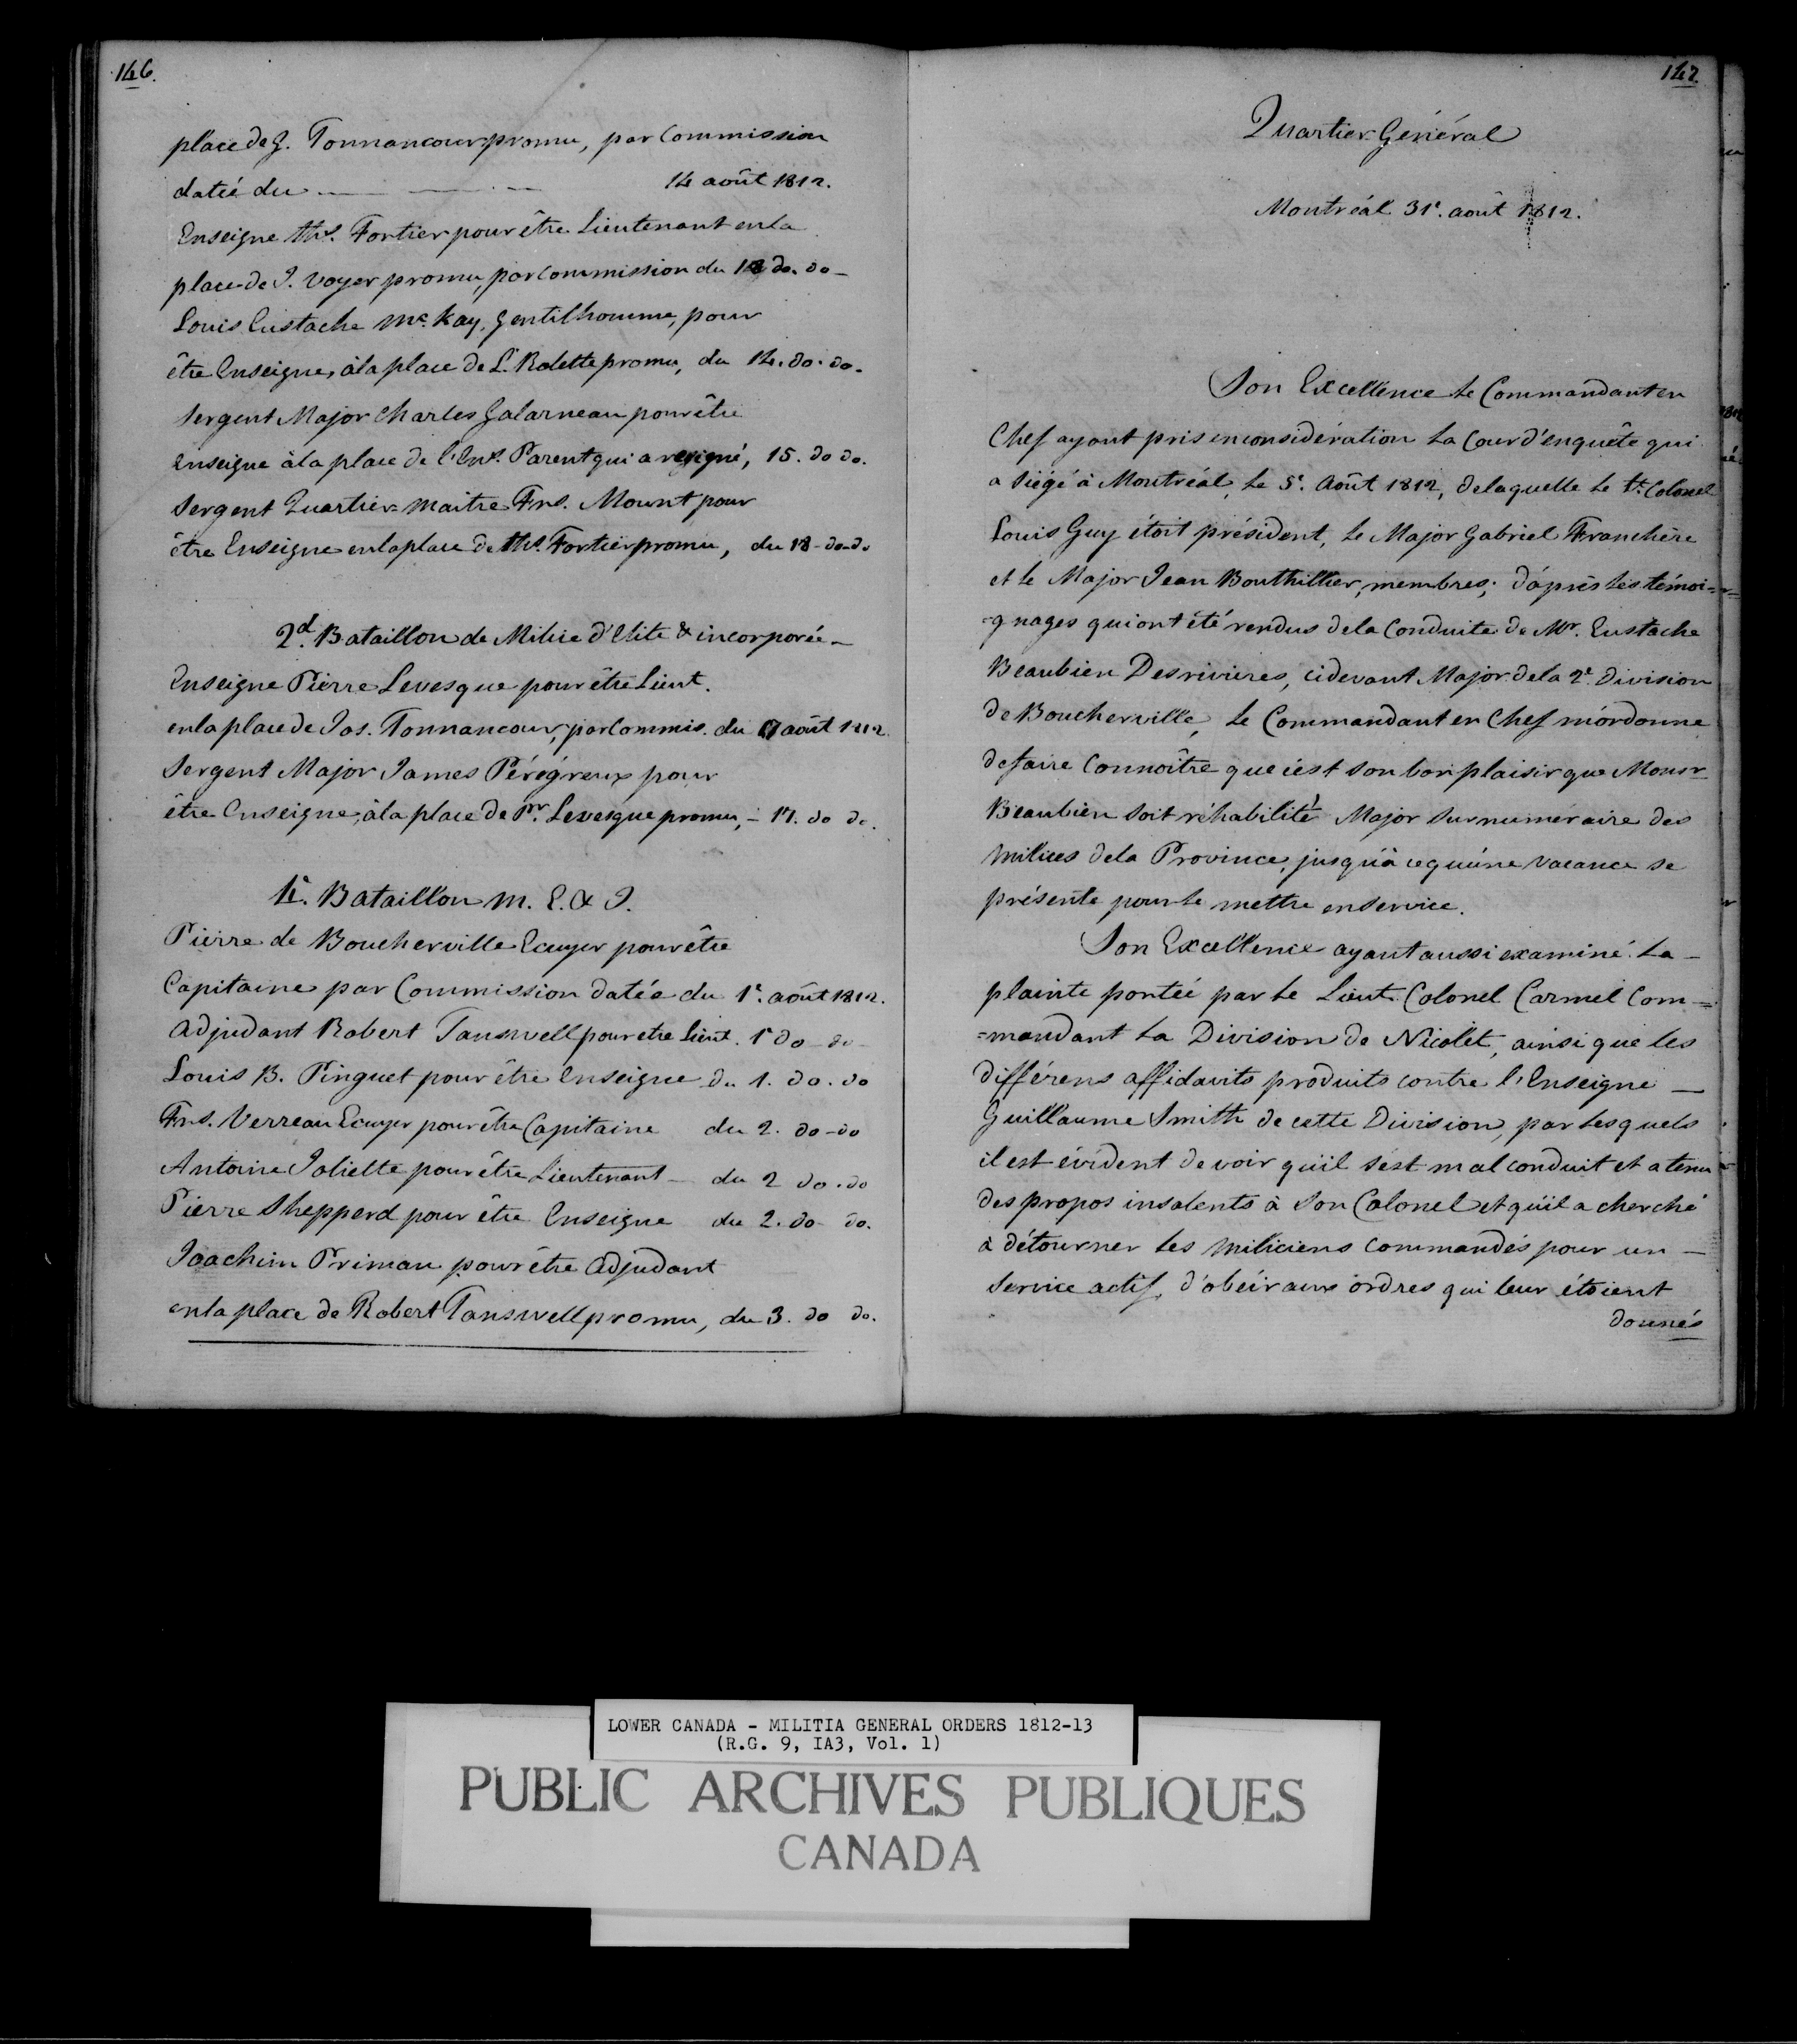 146.
place de J. Tonnancour promu, par Commission
datée du 14 août 1812.
Enseigne Ths. Fortier pour être Lieutenant en la
place de J. Voyer promu, par Commission du 18 do. do -
Louis Eustache Mc. Kay, Gentilhomme, pour
être Enseigne, à la place de L. Rolette promu, du 14. do. do.
Sergent Major Charles Galarneau pour être
enseigne à la place de l'Ens. Parent qui a resigné, 15. do do.
Sergent Quartier-Maitre Frs. Mount pour
être Enseigne en la place de Ths. Fortier promu, du 18 - do - do
2d. Bataillon de Milice d'Elite & incorporée -
Enseigne Pierre Levesque pour être Lieut.
en la place de Jos. Tonnancour, par Commis. du 17 août 1812.
Sergent Major James Pérégreux pour
être Enseigne, à la place de Pr. Levesque promu, - 17. do do.
1e. Bataillon M. E. & I.
Pierre de Boucherville Ecuyer pour être
Capitaine par Commission datée du 1r. août 1812.
Adjudant Robert Tanswell pour etre Lieut. 1r do - do -
Louis B. Pinguet pour être Enseigne du 1. do. do
Frs. Verreau Ecuyer pour être Capitaine du 2. do - do
Antoine Joliette pour être Lieutenant - du 2 do. do
Pierre Shepperd pour être Enseigne du 2. do - do.
Joachim Primau pour être Adjudant
en la place de Robert Tanswell promu, du 3. do do.
147.
Quartier Général
Montréal 31e. août 1812.
Son Excellence le Commandant en
Chef ayant pris en considération la Cour d'enquête qui
a siégé à Montréal, le 5e. Août 1812, de laquelle le Lt. Colonel
Louis Guy étoit président, le Major Gabriel Franchère
et le Major Jean Bouthillier, membres; d'après les témoi=
=gnages qui ont été rendus de la Conduite de Mr. Eustache
Beaubien Desrivieres, cidevant Major de la 2e. Division
de Boucherville, le Commandant en Chef m'ordonne
de faire Connoître que c'est son bon plaisir que Monsr
Beaubien soit réhabilité Major Surnuméraire des
Milices de la Province, jusqu'à ce qu'une vacance se
présente pour le mettre en service.
Son Excellence ayant aussi examiné la -
plainte portée par le Lieut. Colonel Carmel Com=
=mandant la Division de Nicolet, ainsi que les
différens affidavits produits contre l'Enseigne -
Guillaume Smith de cette Division, par lesquels
il est évident de voir qu'il s'est mal conduit et a tenu
des propos insolents à Son Colonel et qu'il a cherché
à détourner les Miliciens Commandés pour un -
Service actif, d'obéir aux ordres qui leur étoient
donnés
LOWER CANADA - MILITIA GENERAL ORDERS 1812-13
(R.G. 9, IA3, Vol. 1)
PUBLIC ARCHIVES PUBLIQUES
CANADA